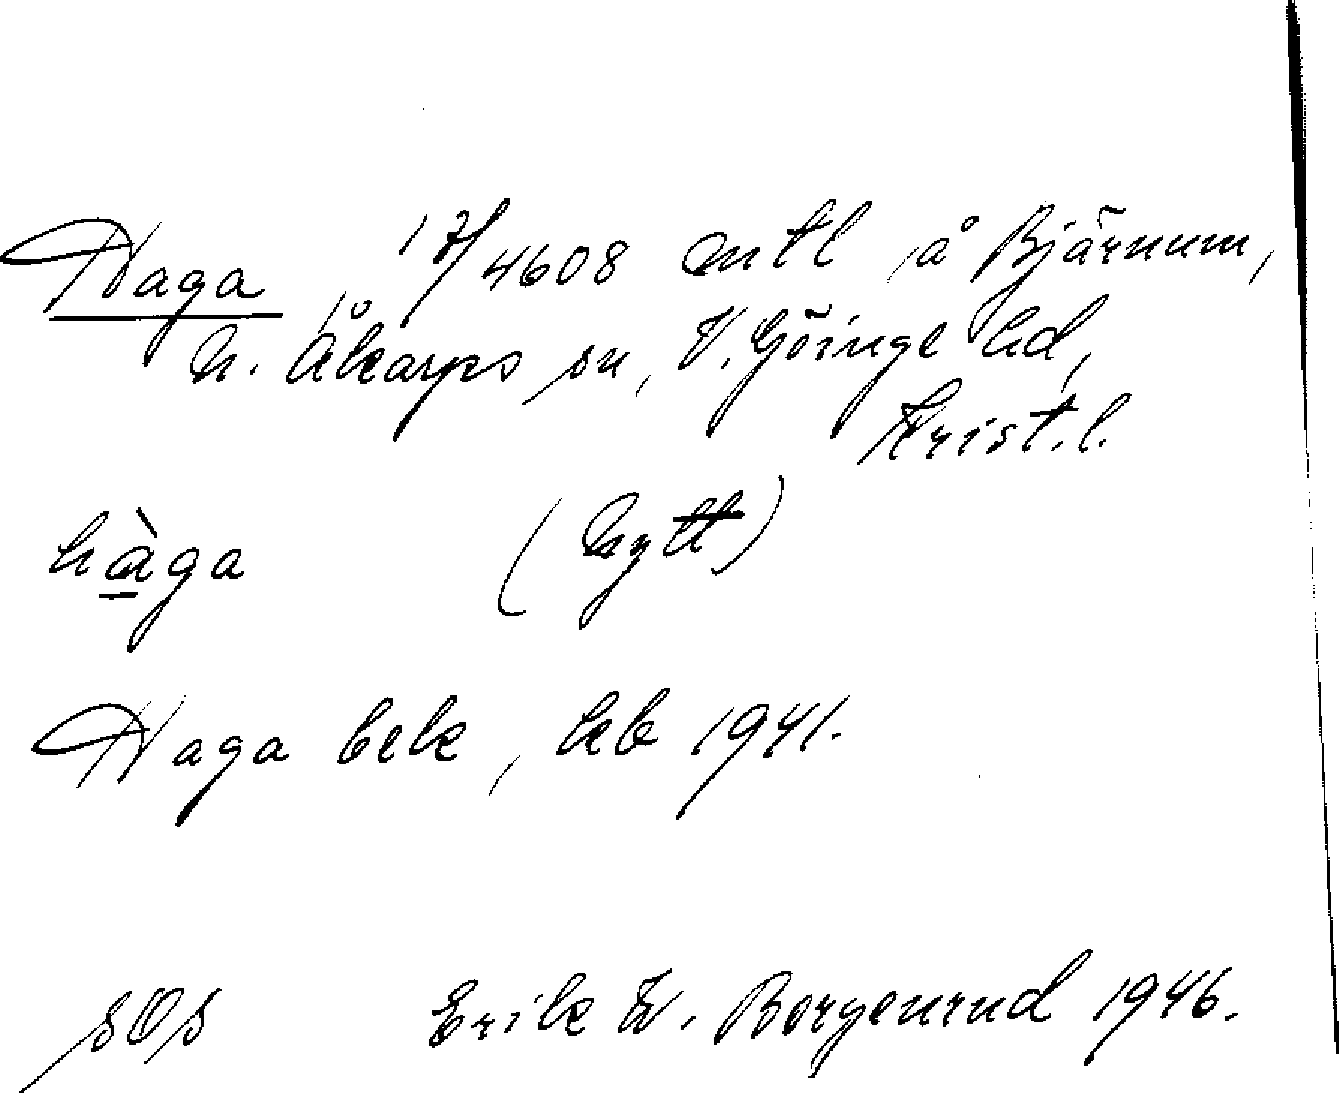 Haga, 17/4608 mtl å Bjärnum,
N. Åkarps sn, V. Göinge hd,
Krist.l.
hàga (Nytt)
Haga bek, hb 1941.
sOs Erik W. Borgenrud 1946.